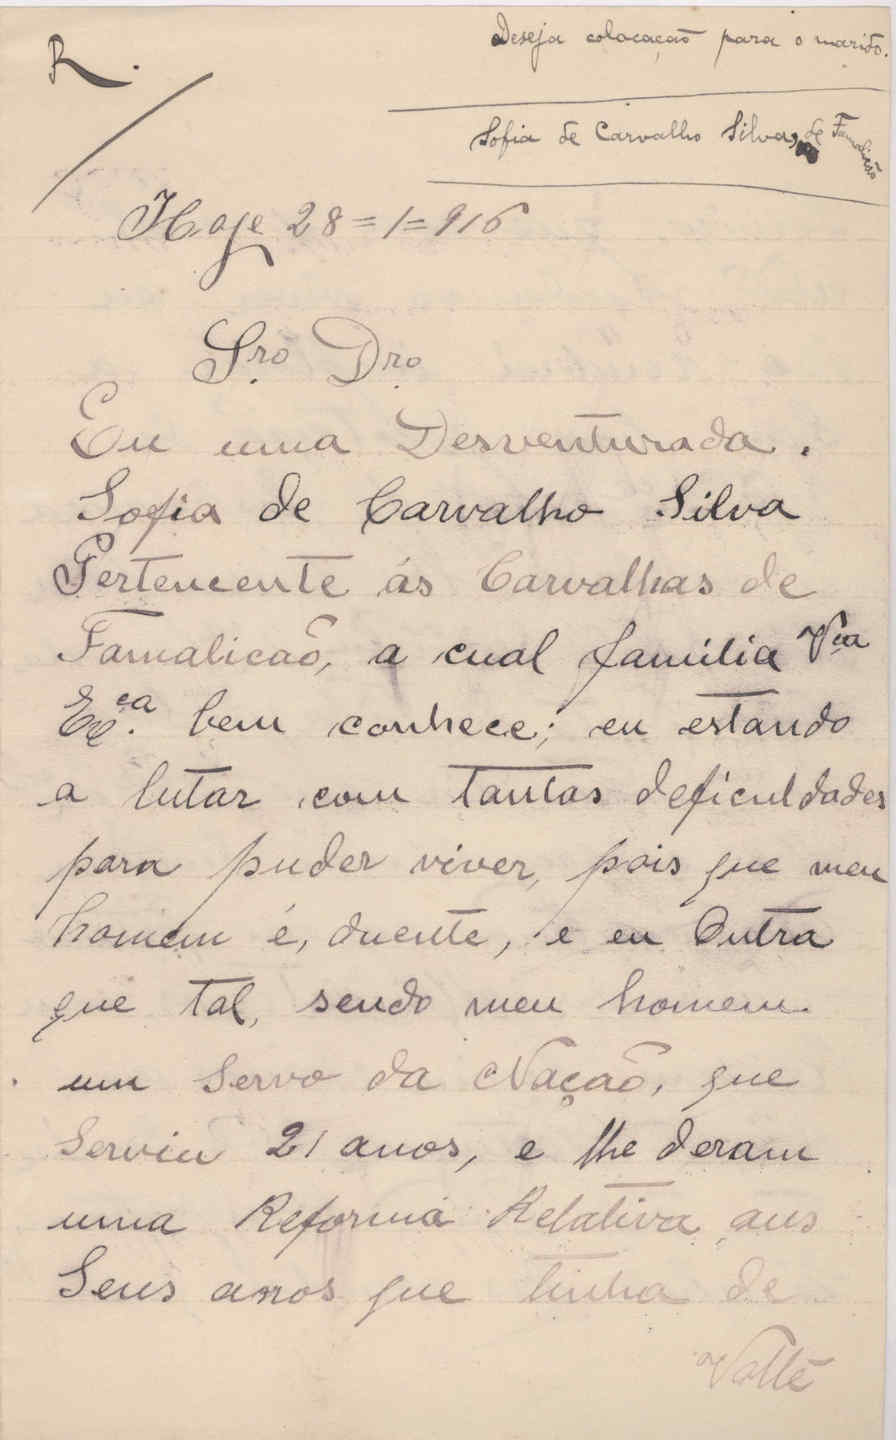 R.
Deseja colocação para o marido.
Sofia de Carvalho Silva, de Famalicão
Hoje 28=1=916
Sro. Dro.
Eu uma Desventurada.
Sofia de Carvalho Silva
Pertencente ás Carvalhas de
Famalicaõ, a cual familia Vca
Eça. bem conhece; eu estando
a lutar com tantas deficuldades
para puder viver, pois que meu
homem é, duente, e eu Outra
que tal, sendo meu homem
um Servo da Naçaõ, que
Serviu 21 anos, e lhe deram
uma Reforma Relativa aus
Seus anos que tinha de